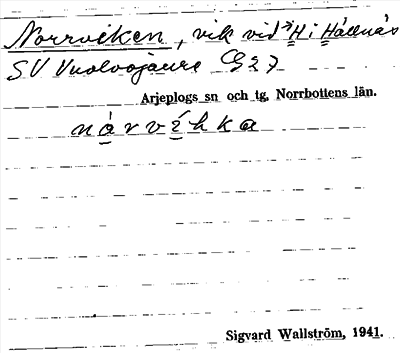 Norrviken, vik vid →H i Hällnäs
SV Vuolvojaure Cg 27
Arjeplogs sn och tg, Norrbottens län.
nàrvíhka
Sigvard Wallström, 1941.